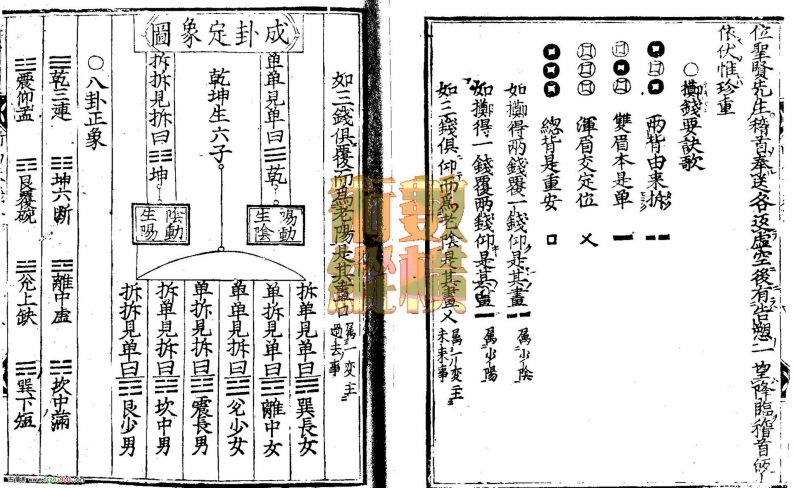 位聖賢先生稽首奉送各返虛空後有告愬一望降臨稽首皈
依伏惟珍重
○擲錢要訣歌
兩背由来拆
雙眉本是单
渾眉交定位 乂
總背是重安 口
如擲得兩錢覆一錢仰是其畫 属少陰
如擲得一錢覆兩錢仰是其畫 属少陽
如三錢俱仰而為老陰是其畫乂 属一変主未来事
如三錢俱覆而為老陽是其畫口 属一変主過去事
成卦定象圖
单单見单曰☰乾
陽動生陰
乾坤生六子
拆拆見拆曰☷坤
陰動生陽
拆单見单曰☴巽長女
单拆見单曰☲離中女
单单見拆曰☱兌少女
单拆見拆曰☳震長男
拆单見拆曰☵坎中男
拆拆見单曰☶艮少男
○八卦正象
☰乾三連 ☷坤六断 ☲離中虛 ☵坎中滿
☳震仰盂 ☶艮覆碗 ☱兌上缺 ☴巽下短
數術縱橫